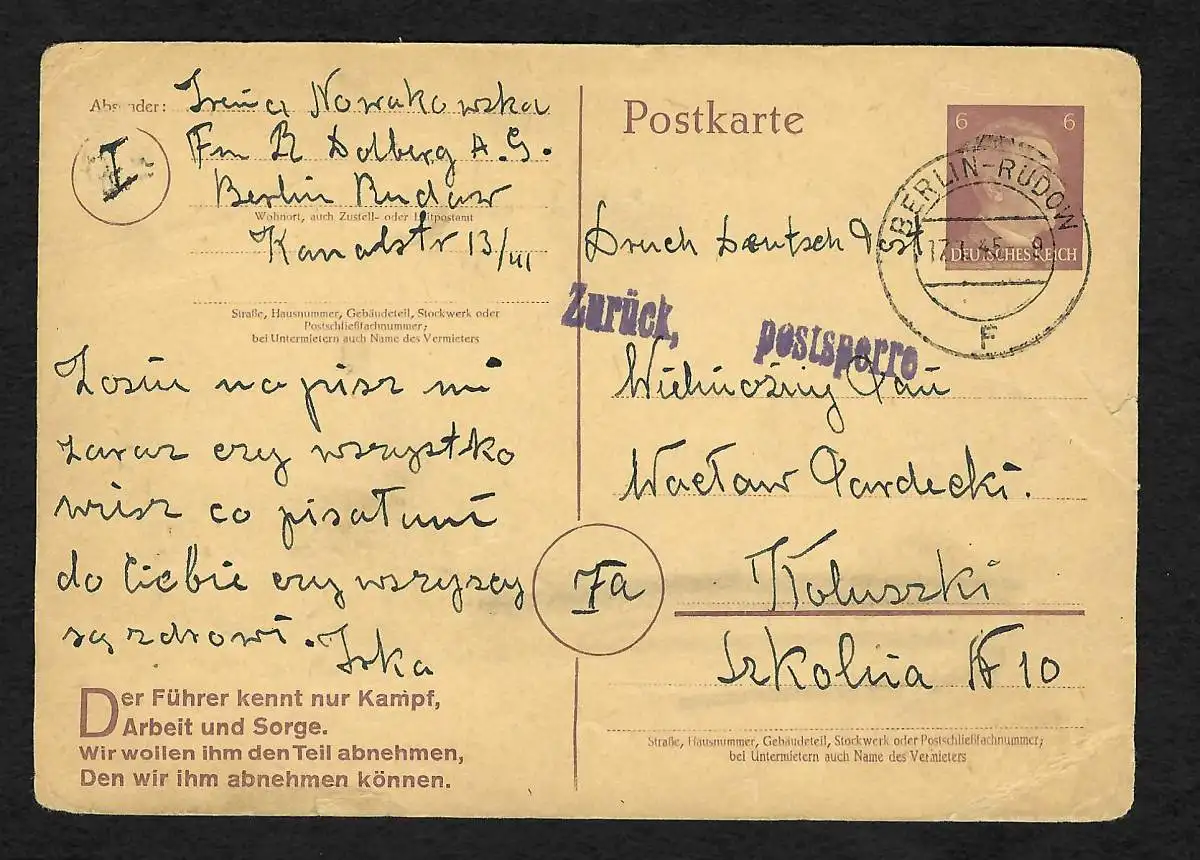 Absender: Irena Nowakowska
I Fa R Dolberg A.G.
Berlin Rudow
Wohnort, auch Zustell- oder Leitpostamt
Kanalstr 13/III
Straße, Hausnummer, Gebäudeteil, Stockwerk oder
Postschließfachnummer;
bei Untermietern auch Name des Vermieters
Zosiu napisz mi
zaraz czy wszystko
wiesz co pisałam
do Ciebie czy wszyscy
są zdrowi.
Irka
Der Führer kennt nur Kampf,
Arbeit und Sorge.
Wir wollen ihm den Teil abnehmen,
Den wir ihm abnehmen können.
Postkarte
6 6
DEUTSCHES REICH
BERLIN-RUDOW
F
Deutsch Ost
Zurück, postsperre
Wielmożny Pan
Wacław Pardecki.
7a Koluszki
Szkolna N 10
Straße, Hausnummer, Gebäudeteil, Stockwerk oder Postschließfachnummer;
bei Untermietern auch Name des Vermieters